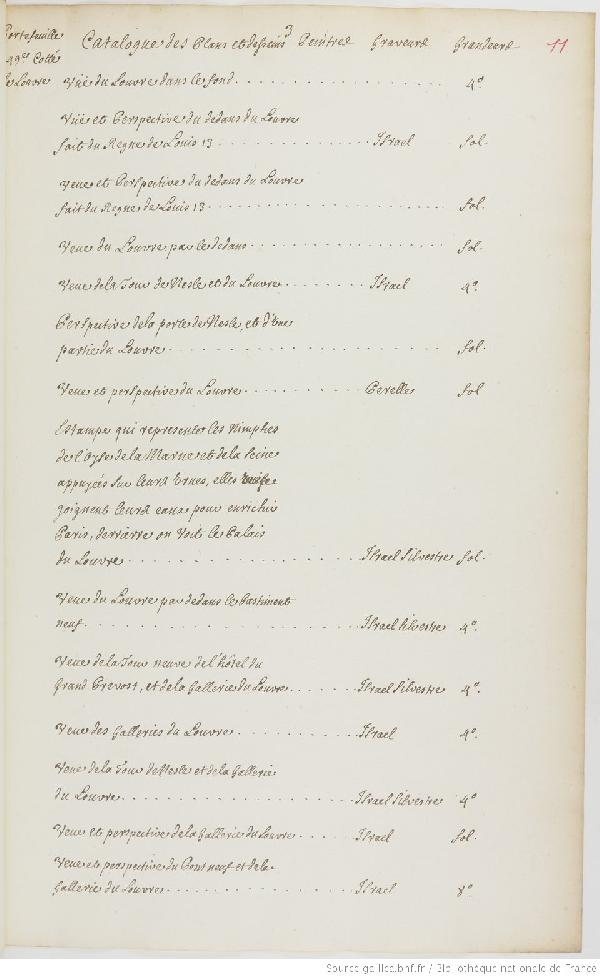 Portefeuille
49er Cotté
le Louvre
Catalogue des Plans et desseins Peintres Graveurs Grandeurs 11
Vüe du Louvre dans le fond 4°
Vüe et Perspective du dedans du Louvre
fait du Regne de Louis 13 Israel fol.
Veue et Perspective du dedans du Louvre
fait du Regne de Louis 13 fol.
Veue du Louvre par le dedans fol.
Veue de la Tour de Nesle et du Louvre Israel 4°.
Perspective de la porte de Nesle, et d'Une
partie du Louvre fol.
Veue et perspective du Louvre Perelle fol
Estampe qui represente les Nimphes
de l'Oyse de la Marne et de la Seine
appuyées sur leurs Urnes, elles
joignent leurs eaux pour enrichir
Paris, derrierre on Voit le Palais
du Louvre Israel Silvestre fol.
Veue du Louvre par dedans le bastiment
neuf Israel silvestre 4°.
Veue de la Tour neuve de l'hôtel du
Grand Prevost, et de la Gallerie du Louvre Israel Silvestre 4°.
Veue des Galleries du Louvre Israel 4°.
Veue de la Tour de Nesle et de la Gallerie
du Louvre Israel Silvestre 4°
Veue et perspective de la Gallerie du Louvre Israel fol.
Veue et perspective du Pont neuf et de la
Gallerie du Louvre Israel 8°
Source gallica.bnf.fr / Bibliothèque nationale de France